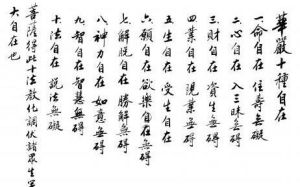 華嚴十種自在
一命自在 住壽無礙
二心自在 入三昧無礙
三財自在 資生無礙
四業自在 現業無礙
五生自在 受生自在
六願自在 欲樂自在無礙
七解脫自在 勝解無礙
八神力自在 如意無礙
九智自在 智慧無礙
十法自在 說法無礙
菩薩得此十法教化調伏諸眾生
大自在也